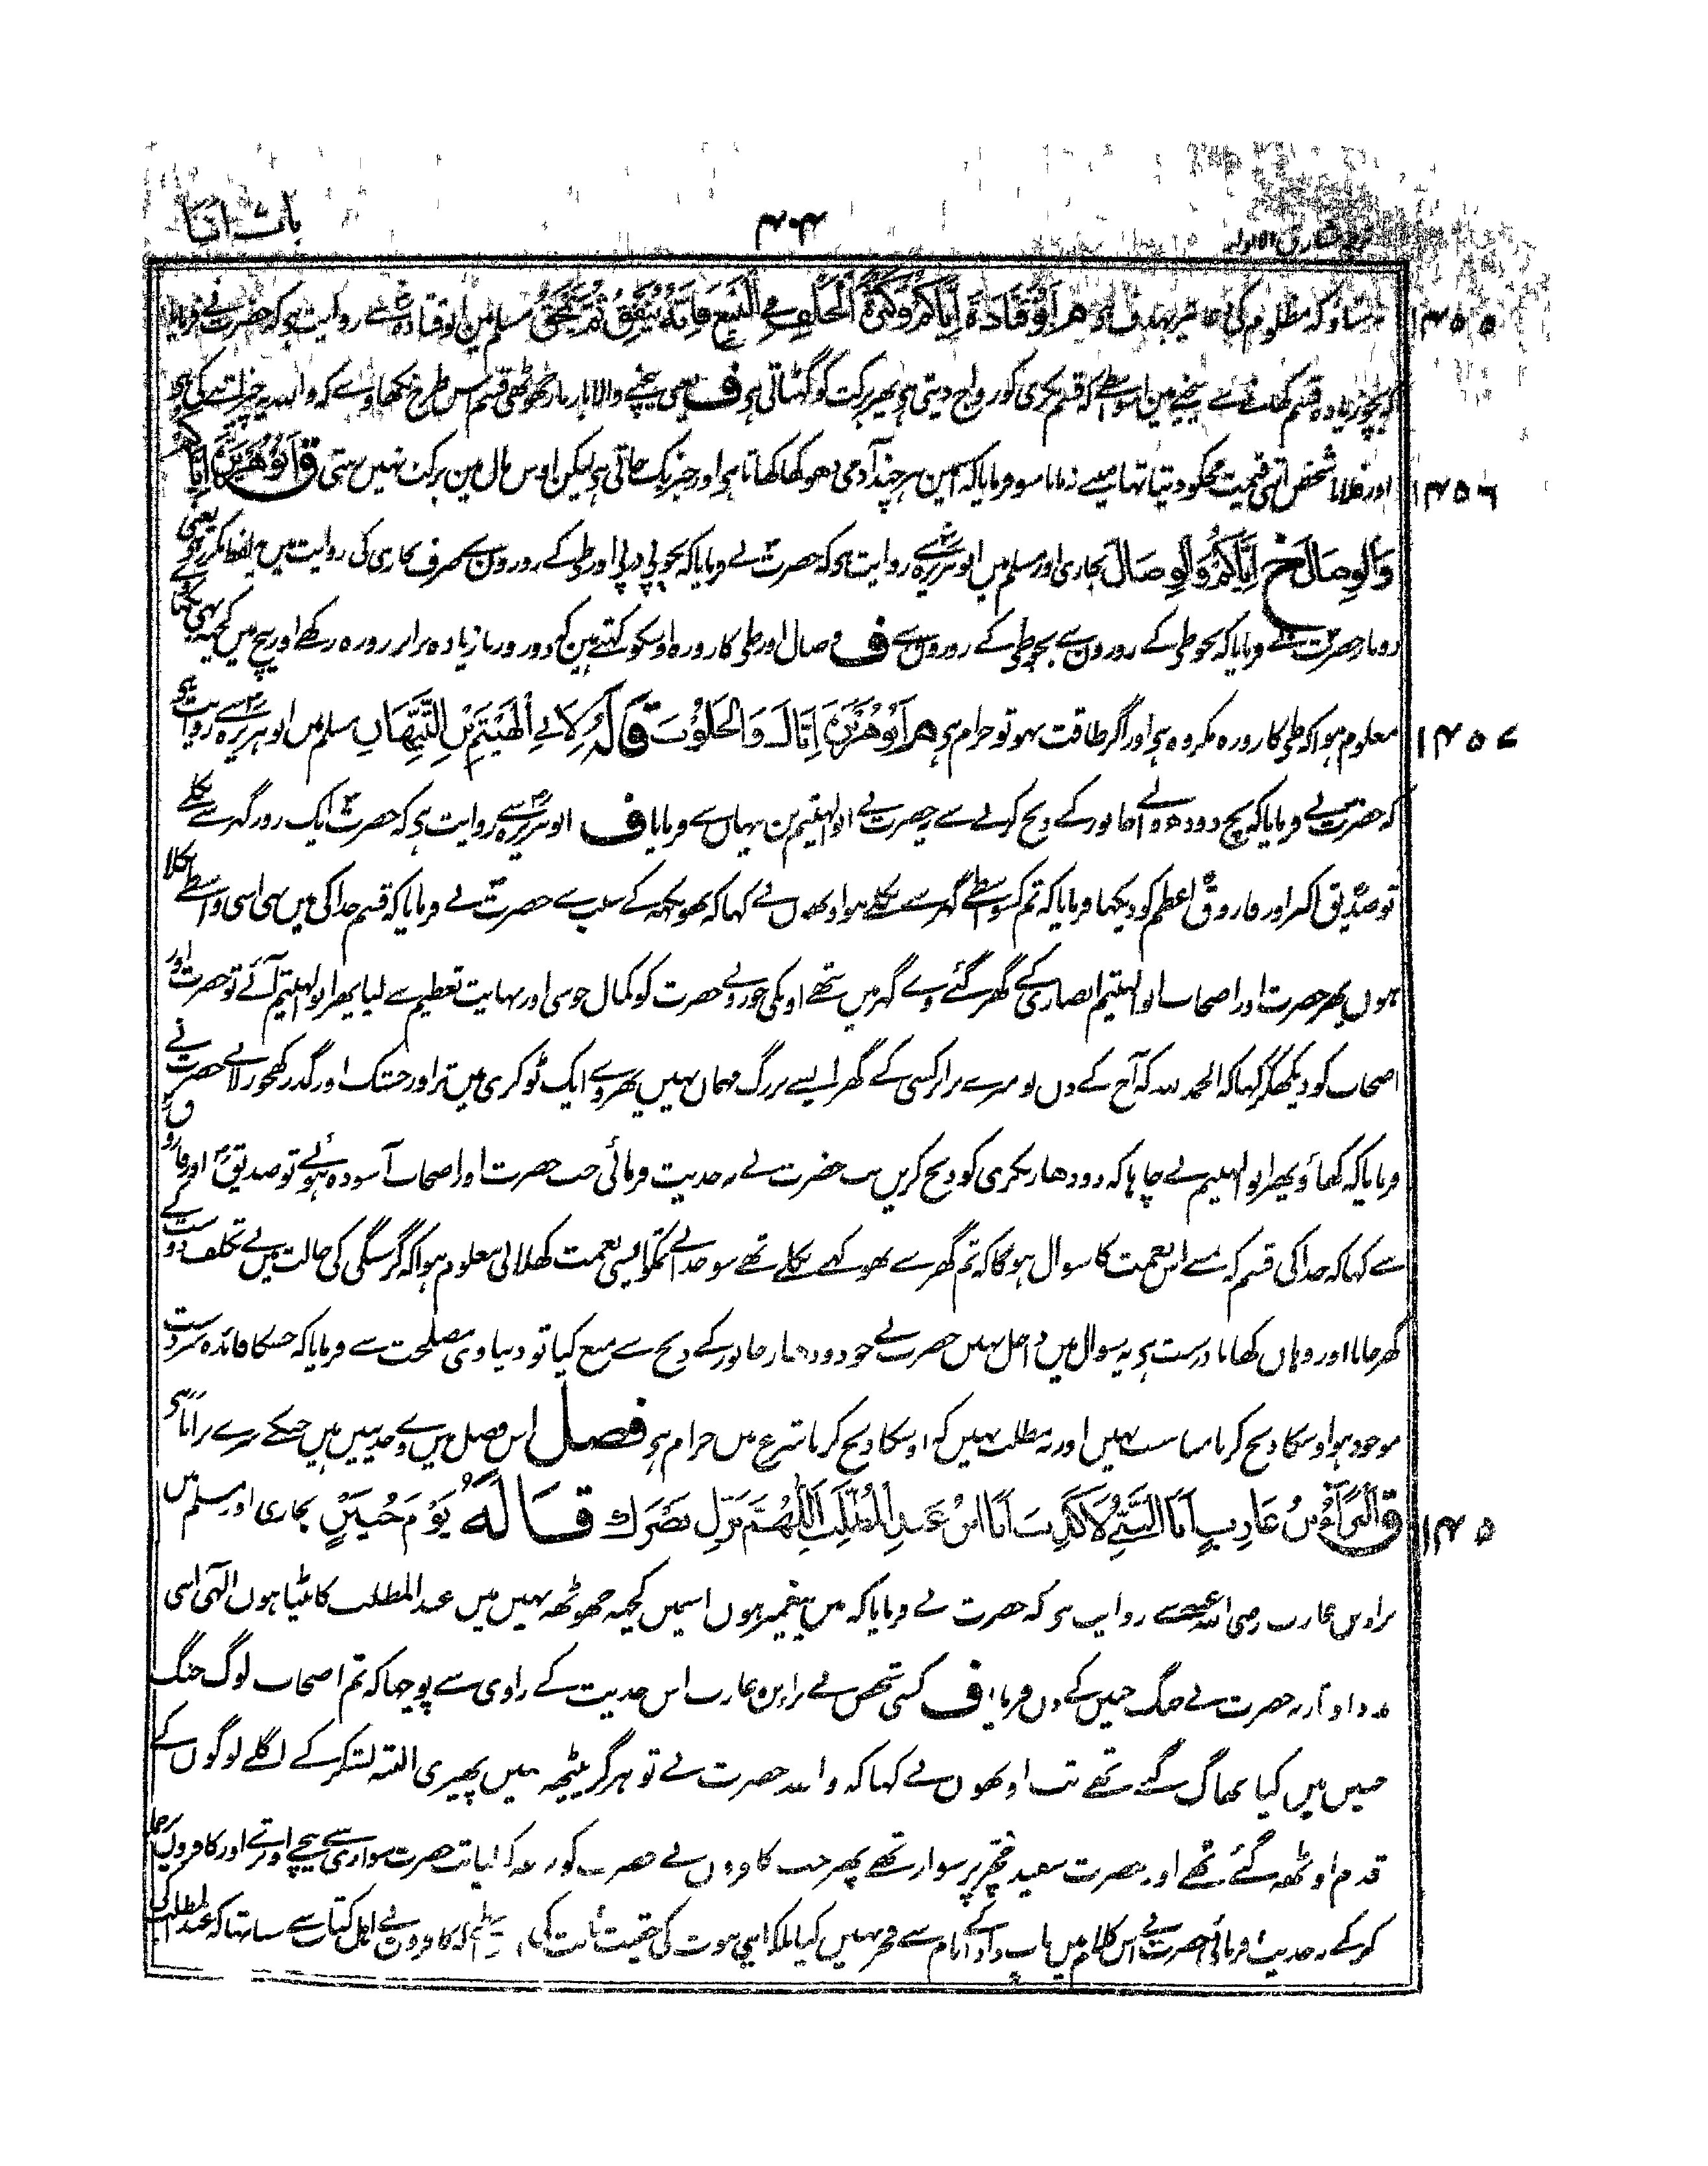 باب انا
۴۰۳
مشارق الانوار
۱۴۵۵ مظلوم کی ھر ابو قتادة اِیَّاکُمْ وَکَثْرَةَ الْحَلْفِ فِی الْبَیْعِ فَاِنَّهُ یُنَفِّقُ ثُمَّ یَمْحَقُ مسلم میں ابو قتادہ سے روایت ہی کہ حضرت نے فرمایا
کہ بچو زیادہ قسم کھانے سے بیچنے مین اسواسطے کہ قسم بکری کو رواج دیتی ہی پھر برکت کو گھٹاتی ہی ف یعنی بیچنے والا بار بار جھوٹھی قسم اس طرح نکھاوے کہ واللہ یہ چیز اتنے کی ہی
۱۴۵۶ اور فلانا شخص اتنی قیمت مجکو دیتا تھا مینے ندیا سو فرمایا کہ اسمین ہر چند آدمی دھوکھا کھاتا ہی اور چیز بک جاتی ہی لیکن اوس مال مین برکت نہیں رہتی ق اَبُو هُرَیْرَةَ اِیَّاکُمْ
وَالْوِصَالَ خ اِیَّاکُمْ وَالْوِصَالَ بخاری اور مسلم میں ابو ہریرہ سے روایت ہی کہ حضرت نے فرمایا کہ بچو پی در پی اور طی کے روزون سے صرف بخاری کی روایت میں یہ لفظ مکرر ہی یعنی
دوبار حضرت نے فرمایا کہ بچو طی کے روزون سے بچو طی کے روزوں سے ف وصال اور طی کا روزہ اوسکو کہتے ہین کہ دو روز یا زیادہ برابر روزہ رکھے اور بیچ میں کچھہ بھی نکھائے
۱۴۵۷ معلوم ہوا کہ طی کا روزہ مکروہ ہی اور اگر طاقت نہو تو حرام ہی ھر اَبُو هُرَیْرَةَ اِیَّاكَ وَالْحَلُوْبَ قَالَهُ لِاَبِی الْهَیْثَمِ بْنِ التَّیِّهَانِ مسلم میں ابو ہریرہ سے روایت ہی
کہ حضرت نے فرمایا کہ بچ دودھ والے جانور کے ذبح کرنے سے یہ حضرت نے ابو الہیثم بن تیہاں سے فرمایا ف ابو ہریرہ سے روایت ہی کہ حضرت ایک روز گھر سے نکلے
تو صدیق اکبر اور فاروق اعظم کو دیکھا فرمایا کہ تم کسواسطے گھر سے نکلے ہو اونھوں نے کہا کہ بھوکھہ کے سبب سے حضرت نے فرمایا کہ قسم خدا کی میں بھی اسی واسطے نکلا
ہوں پھر حضرت اور اصحاب ابو الہیثم انصاری کے گھر گئے وے گھر میں نتھے اونکی جورو نے حضرت کو کمال خوشی اور نہایت تعظیم سے لیا پھر ابو الہیثم آئے تو حضرت اور
اصحاب کو دیکھکر کہا کہ الحمد للہ کہ آج کے دں تو میرے برابر کسی کے گھر ایسے بزرگ مہماں نہیں پھر وے ایک ٹوکری میں تر اور خشک اور گدر کھجور لائے حضرت نے
فرمایا کہ کھاؤ پھر ابو الہیثم نے چاہا کہ دودھار بکری کو ذبح کریں تب حضرت نے یہ حدیث فرمائی جب حضرت اور اصحاب آسودہ ہوئے تو صدیق اور فاروق
سے کہا کہ خدا کی قسم کہ تم سے اس نعمت کا سوال ہوگا کہ تم گھر سے بھوکھے نکلے تھے سو خدا نے تمکو ایسی نعمت کھلائی معلوم ہوا کہ گرسنگی کی حالت میں بے تکلف دوست کے
گھر جانا اور وہاں کھانا درست ہی یہ سوال میں داخل نہیں حضرت نے جو دودھار جانور کے ذبح سے منع کیا تو دنیاوی مصلحت سے فرمایا کہ جسکا فائدہ سردست
موجود ہو اوسکا ذبح کرنا مناسب نہیں اور یہ مطلب نہیں کہ اوسکا ذبح کرنا شرع میں حرام ہی فصل اس فصل میں وے حدیثیں ہیں جنکے سرے پر انا ہی
۱۴۵ ق اَلْبَرَاءُ بْنُ عَازِبٍ اَنَا النَّبِیُّ لَا کَذِبْ اَنَا ابْنُ عَبْدِ الْمُطَّلِبْ اَللّٰهُمَّ نَزِّلْ نَصْرَكَ قَالَهُ یَوْمَ حُنَیْنٍ بخاری اور مسلم میں
براء بن عازب رضی اللہ عنہ سے روایت ہی کہ حضرت نے فرمایا کہ میں پیغمبر ہوں اسمیں کچھہ جھوٹھہ نہیں میں عبد المطلب کا بیٹا ہوں الہی اپنی
مدد اوتار یہ حضرت نے جنگ حنین کے دں فرمایا ف کسی شخص نے براء بن عازب اس حدیث کے راوی سے پوچھا کہ تم اصحاب لوگ جنگ
حنین میں کیا بھاگ گئے تھے تب اونھوں نے کہا کہ واللہ حضرت نے تو ہرگز پیٹھہ نہیں پھیری البتہ لشکر کے اگلے لوگوں کے
قدم اوٹھہ گئے تھے اور حضرت سفید خچر پر سوار تھے پھر جب کافروں نے حضرت کو گھیر لیا تب حضرت سواری سے نیچے اوترے اور کافروں پر حملہ
کرکے یہ حدیث فرمائی حضرت نے اس کلام میں باپ دادے کے نام سے فخر نہیں کیا بلکہ اپنی نبوت کی حقیت ثابت کی کافروں نے اہل کتاب سے سنا تھا کہ عبد المطلب کی